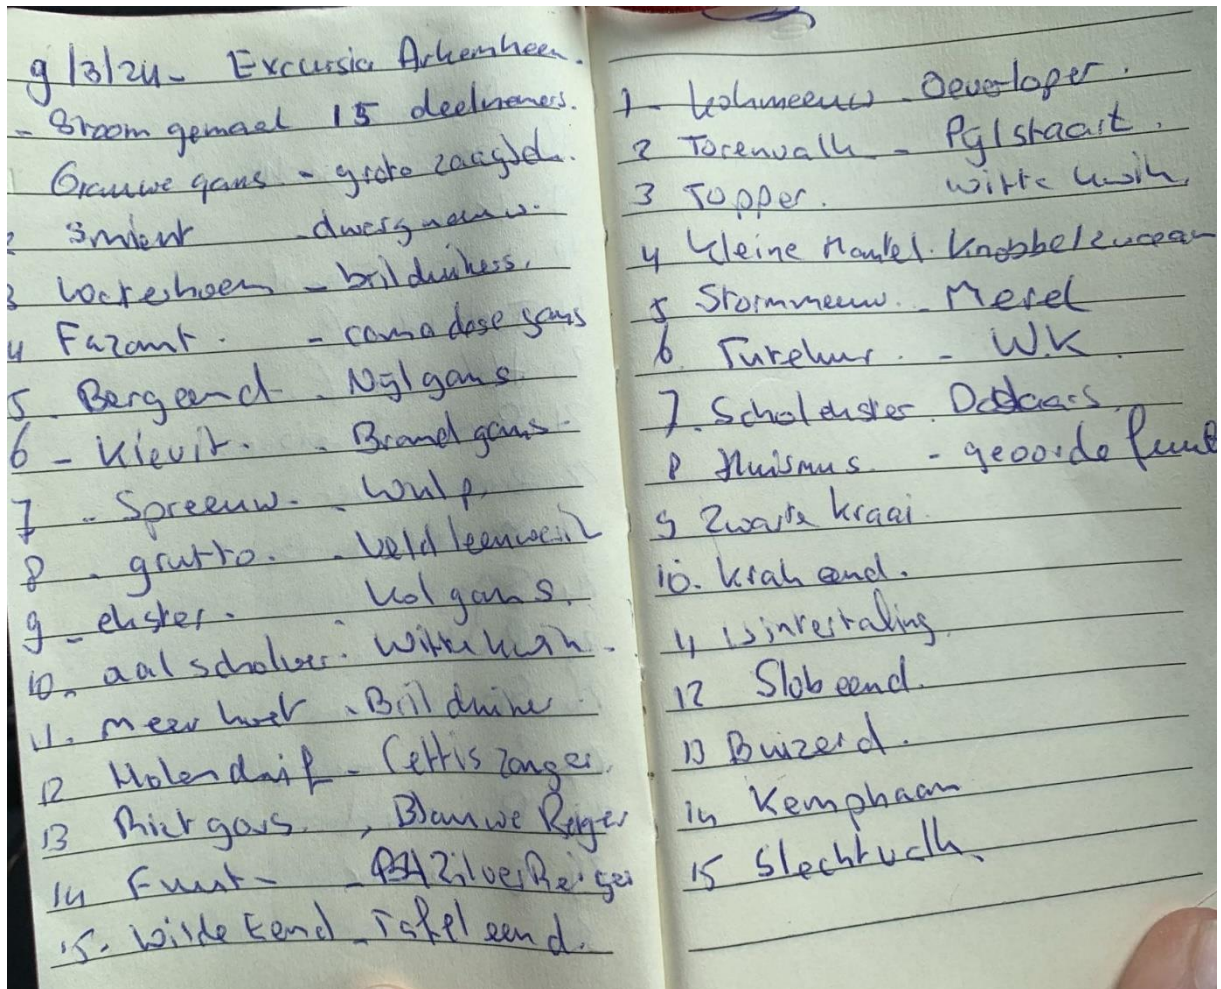 9/3/24 - Excursie Arkemheen.
- Stoomgemaal 15 deelnemers.
1 Grauwe gans - grote zaagbek.
2 Smient - dwergmeeuw.
3 Waterhoen - brilduikers.
4 Fazant. - canadase gans
5. Bergeend - Nijlgans.
6 - Kievit. - Brandgans
7 - Spreeuw. - Wulp.
8 - grutto. - Veldleeuwerik
9 - ekster. - Kolgans.
10. aalscholver. Witte kwik.
11. meerkoet - Brilduiker
12 Holenduif - Cettis zanger.
13 Rietgans. , Blauwe Reiger
14 Fuut - - ZilverReiger
15. Wilde Eend - Tafeleend.
1 - kokmeeuw - Oeverloper.
2 Torenvalk - Pijlstaart.
3 Topper. witte kwik.
4 Kleine Mantel. Knobbelzwaan
5 Stormmeeuw. - Merel
6. Tureluur. - W.K.
7. Scholekster. Dodaars.
8 Huismus. - geoorde fuut
9 Zwarte kraai.
10. Krakeend.
11 Wintertaling
12 Slobeend.
13 Buizerd.
14 Kemphaan
15 Slechtvalk.